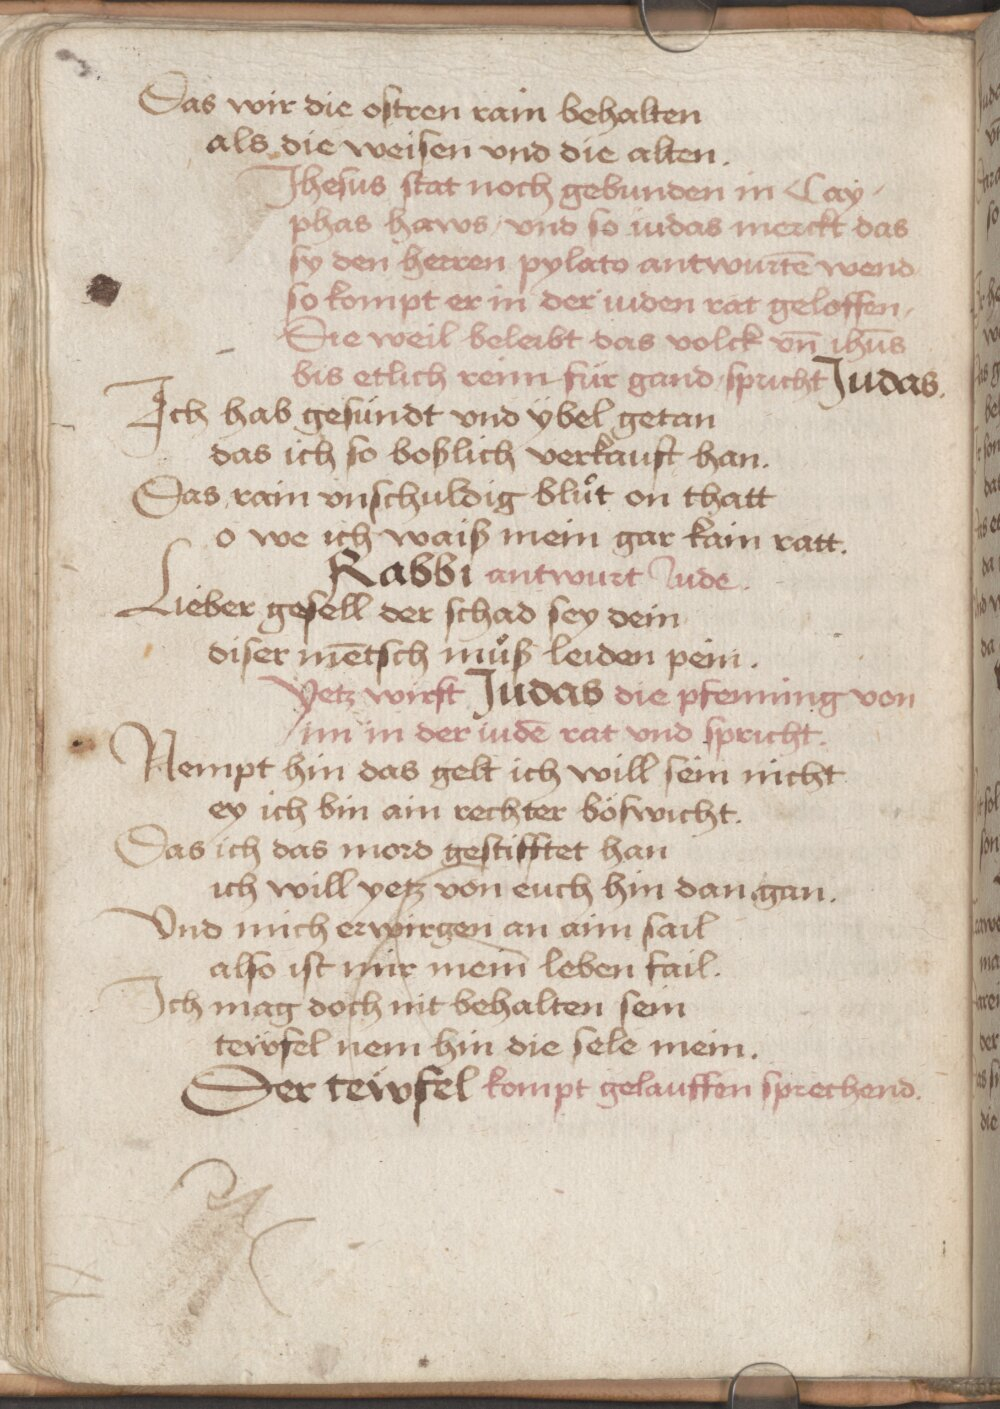 Das wir die ostren rain behalten
als die weisen vnd die alten.
Jhesus stat noch gebunden in Cay-
phas haws, vnd so iudas merckt das
sy den herren pylato antwurtē wend
so kompt er in der iuden rat geloffen,
Die weil beleibt das volck vn̄ ihūs
bis etlich reim für gand, spricht Judas.
Ich hab gesündt vnd ÿbel getan
das ich so boßlich verkauft han.
Das rain vnschuldig blůt on thatt
o we ich waiß mein gar kain ratt.
Rabbi antwurt Jude.
Lieber gesell der schad sey dein
diser mētsch můß leiden pein.
Yetz wirft Judas die pfenning von
im in der iudē rat vnd spricht.
Nempt hin das gelt ich will sein nicht
ey ich bin ain rechter böswicht.
Das ich das mord gestifftet han
ich will yetz von euch hin dan gan.
Vnd mich erwirgen an aim sail
also ist mir mein leben fail.
Ich mag doch nit behalten sein
teẅfel nem hin die sele mein.
Der teẅfel kompt gelauffen sprechend.